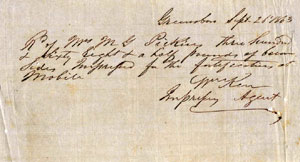 Greensboro Sept. 21st 1863
Rd of Mrs M G Pickens three hundred
& sixty eight & a half pounds of bacon
sides Impressed for the fortifications at
Mobile
Impressg Agent